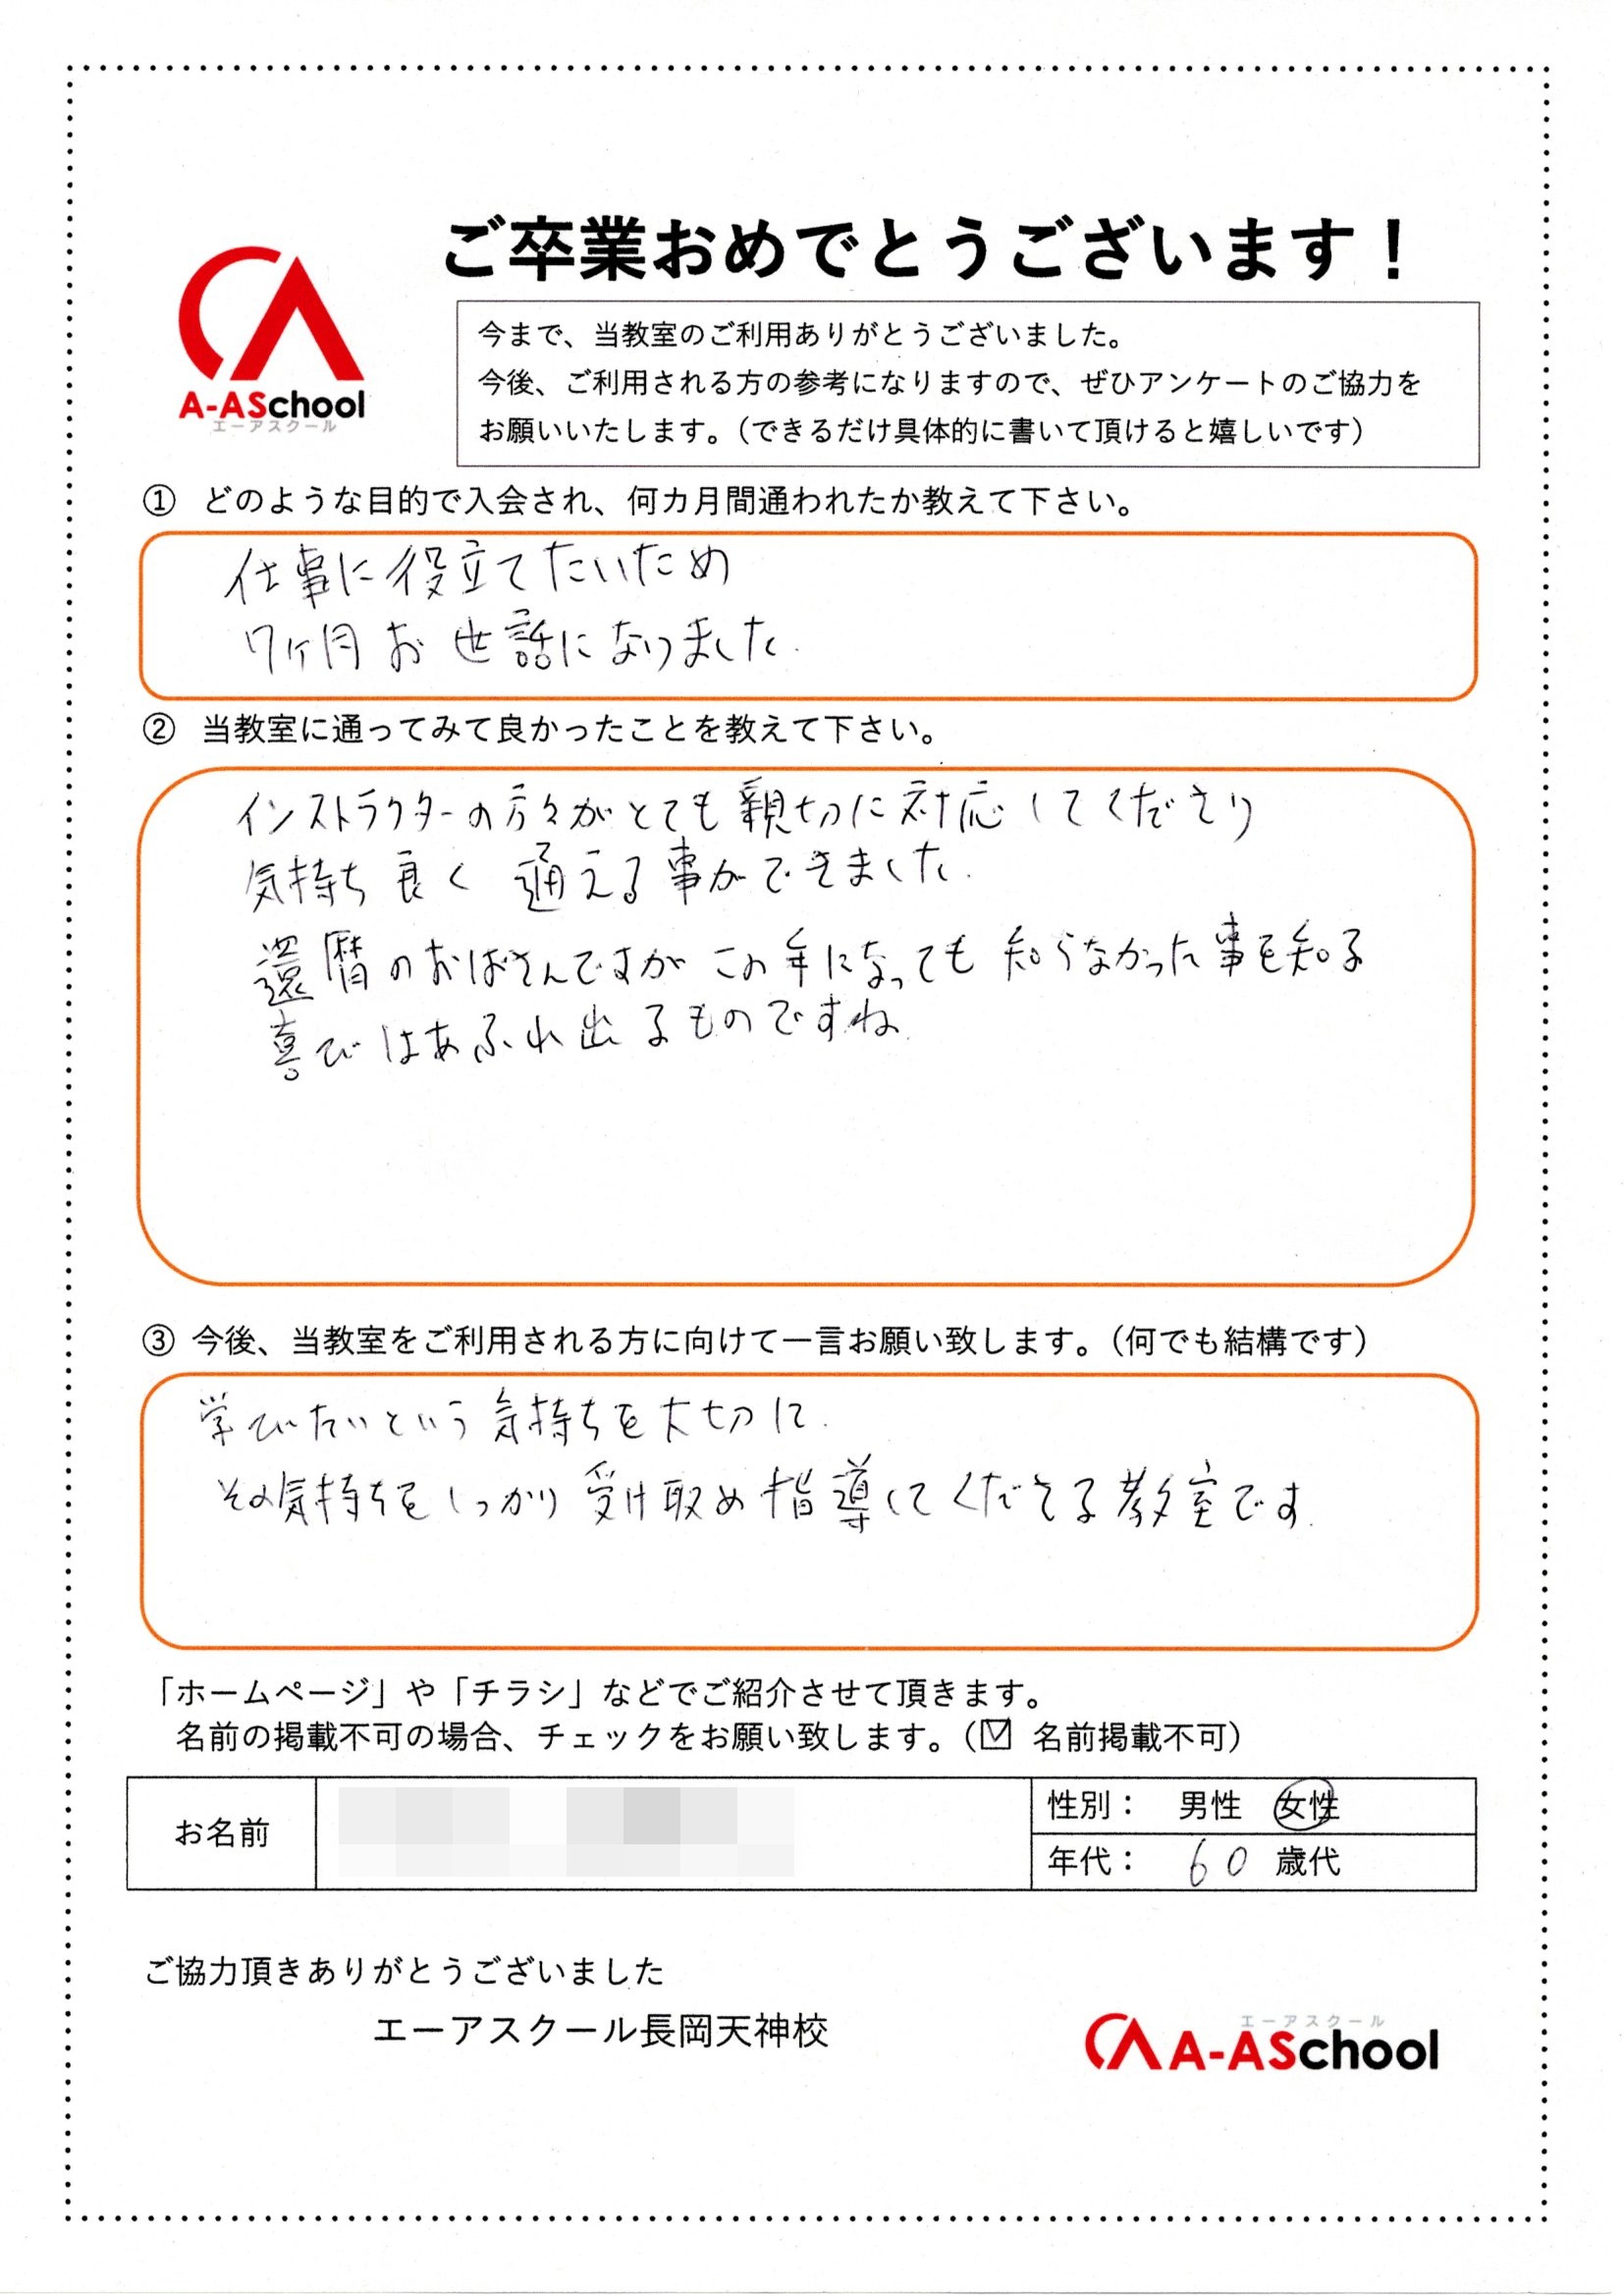 ご卒業おめでとうございます！
A-ASchool
エーアスクール
今まで、当教室のご利用ありがとうございました。
今後、ご利用される方の参考になりますので、ぜひアンケートのご協力を
お願いいたします。（できるだけ具体的に書いて頂けると嬉しいです）
① どのような目的で入会され、何カ月間通われたか教えて下さい。
仕事に役立てたいため
7ヶ月お世話になりました.
② 当教室に通ってみて良かったことを教えて下さい。
インストラクターの方々がとても親切に対応してくださり
気持ち良く通える事ができました.
還暦のおばさんですがこの年になっても知らなかった事を知る
喜びはあふれ出るものですね.
③ 今後、当教室をご利用される方に向けて一言お願い致します。（何でも結構です）
学びたいという気持ちを大切に.
その気持ちをしっかり受け取め指導してくださる教室です.
「ホームページ」や「チラシ」などでご紹介させて頂きます。
名前の掲載不可の場合、チェックをお願い致します。（☑ 名前掲載不可）
お名前
性別： 男性 女性
年代： 60 歳代
ご協力頂きありがとうございました
エーアスクール長岡天神校
エーアスクール
A-ASchool